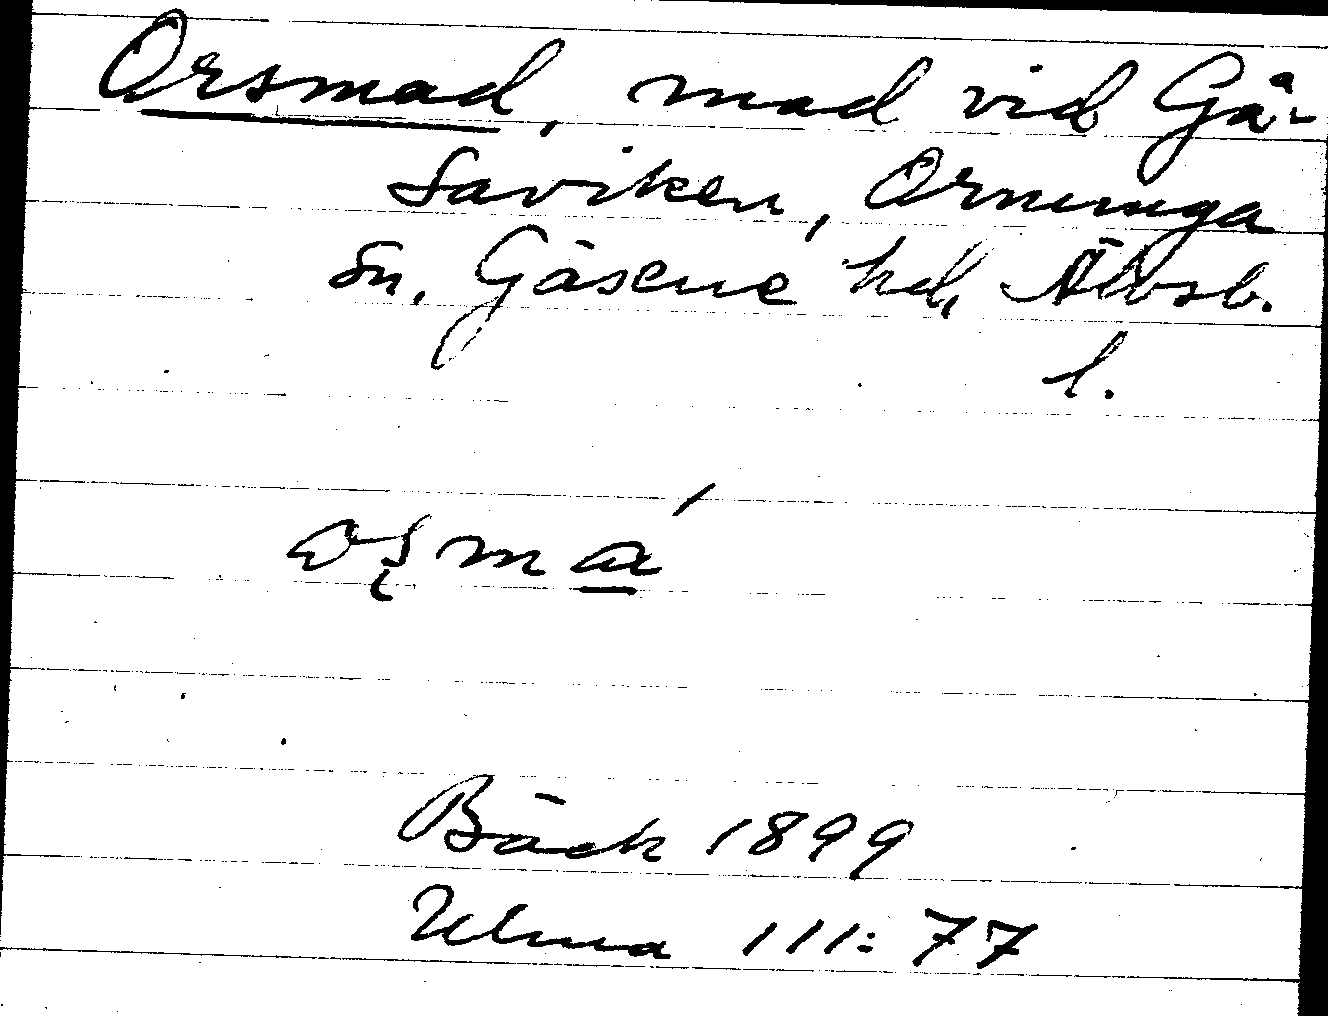 Orsmad, mad vid Gå-
saviken, Ornunga
sn, Gäsene hd, Älvsb.
l.
Bäck 1899
Ulma 111:77